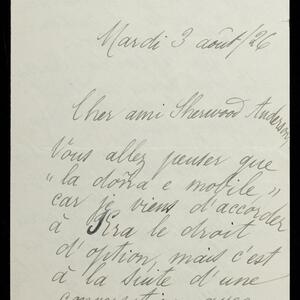 Mardi 3 août/26
Cher ami Sherwood Anderson
Vous allez penser que
"la doña e mobile"
car je viens d'accorder
à Kra le droit
d'option, mais c'est
à la suite d'une